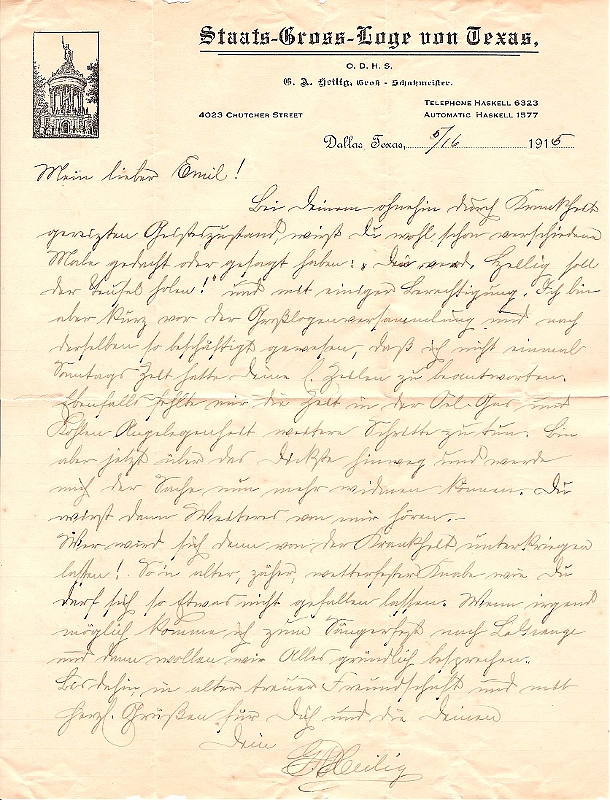 Staats-Gross-Loge von Texas,
O. D. H. S.
G. A. Heilig, Groß-Schatzmeister.
4023 CRUTCHER STREET
TELEPHONE HASKELL 6323
AUTOMATIC HASKELL 1577
Dallas, Texas, 5/16 1915
Mein lieber Emil!
Bei deinem ohnehin durch Krankheit
gereizten Geisteszustand, wirst du wohl schon verschiedene
Male gedacht oder gesagt haben: „Den Heilig soll
der Teufel holen!" und mit einiger Berechtigung. Ich bin
aber kurz vor der Großlogenversammlung und nach
derselben so beschäftigt gewesen, daß ich nicht einmal
Sonntags Zeit hatte deine l. Zeilen zu beantworten.
Ebenfalls fehlte mir die Zeit in der Oel-Gas und
Kohlen Angelegenheit weitere Schritte zu tun. Bin
aber jetzt über das Dickste hinweg und werde
mich der Sache nun mehr widmen können. Du
wirst dann Weiteres von mir hören.-
Wer wird sich denn von der Krankheit unterkriegen
lassen! So'n alter, zäher, wetterfester Knabe wie Du
darf sich so Etwas nicht gefallen lassen. Wenn irgend
möglich komme ich zum Sängerfest nach LaGrange
und dann wollen wir Alles gründlich besprechen.
Bis dahin in alter treuer Freundschaft und mit
herzl. Grüßen für Dich und die Deinen
Dein
G A Heilig